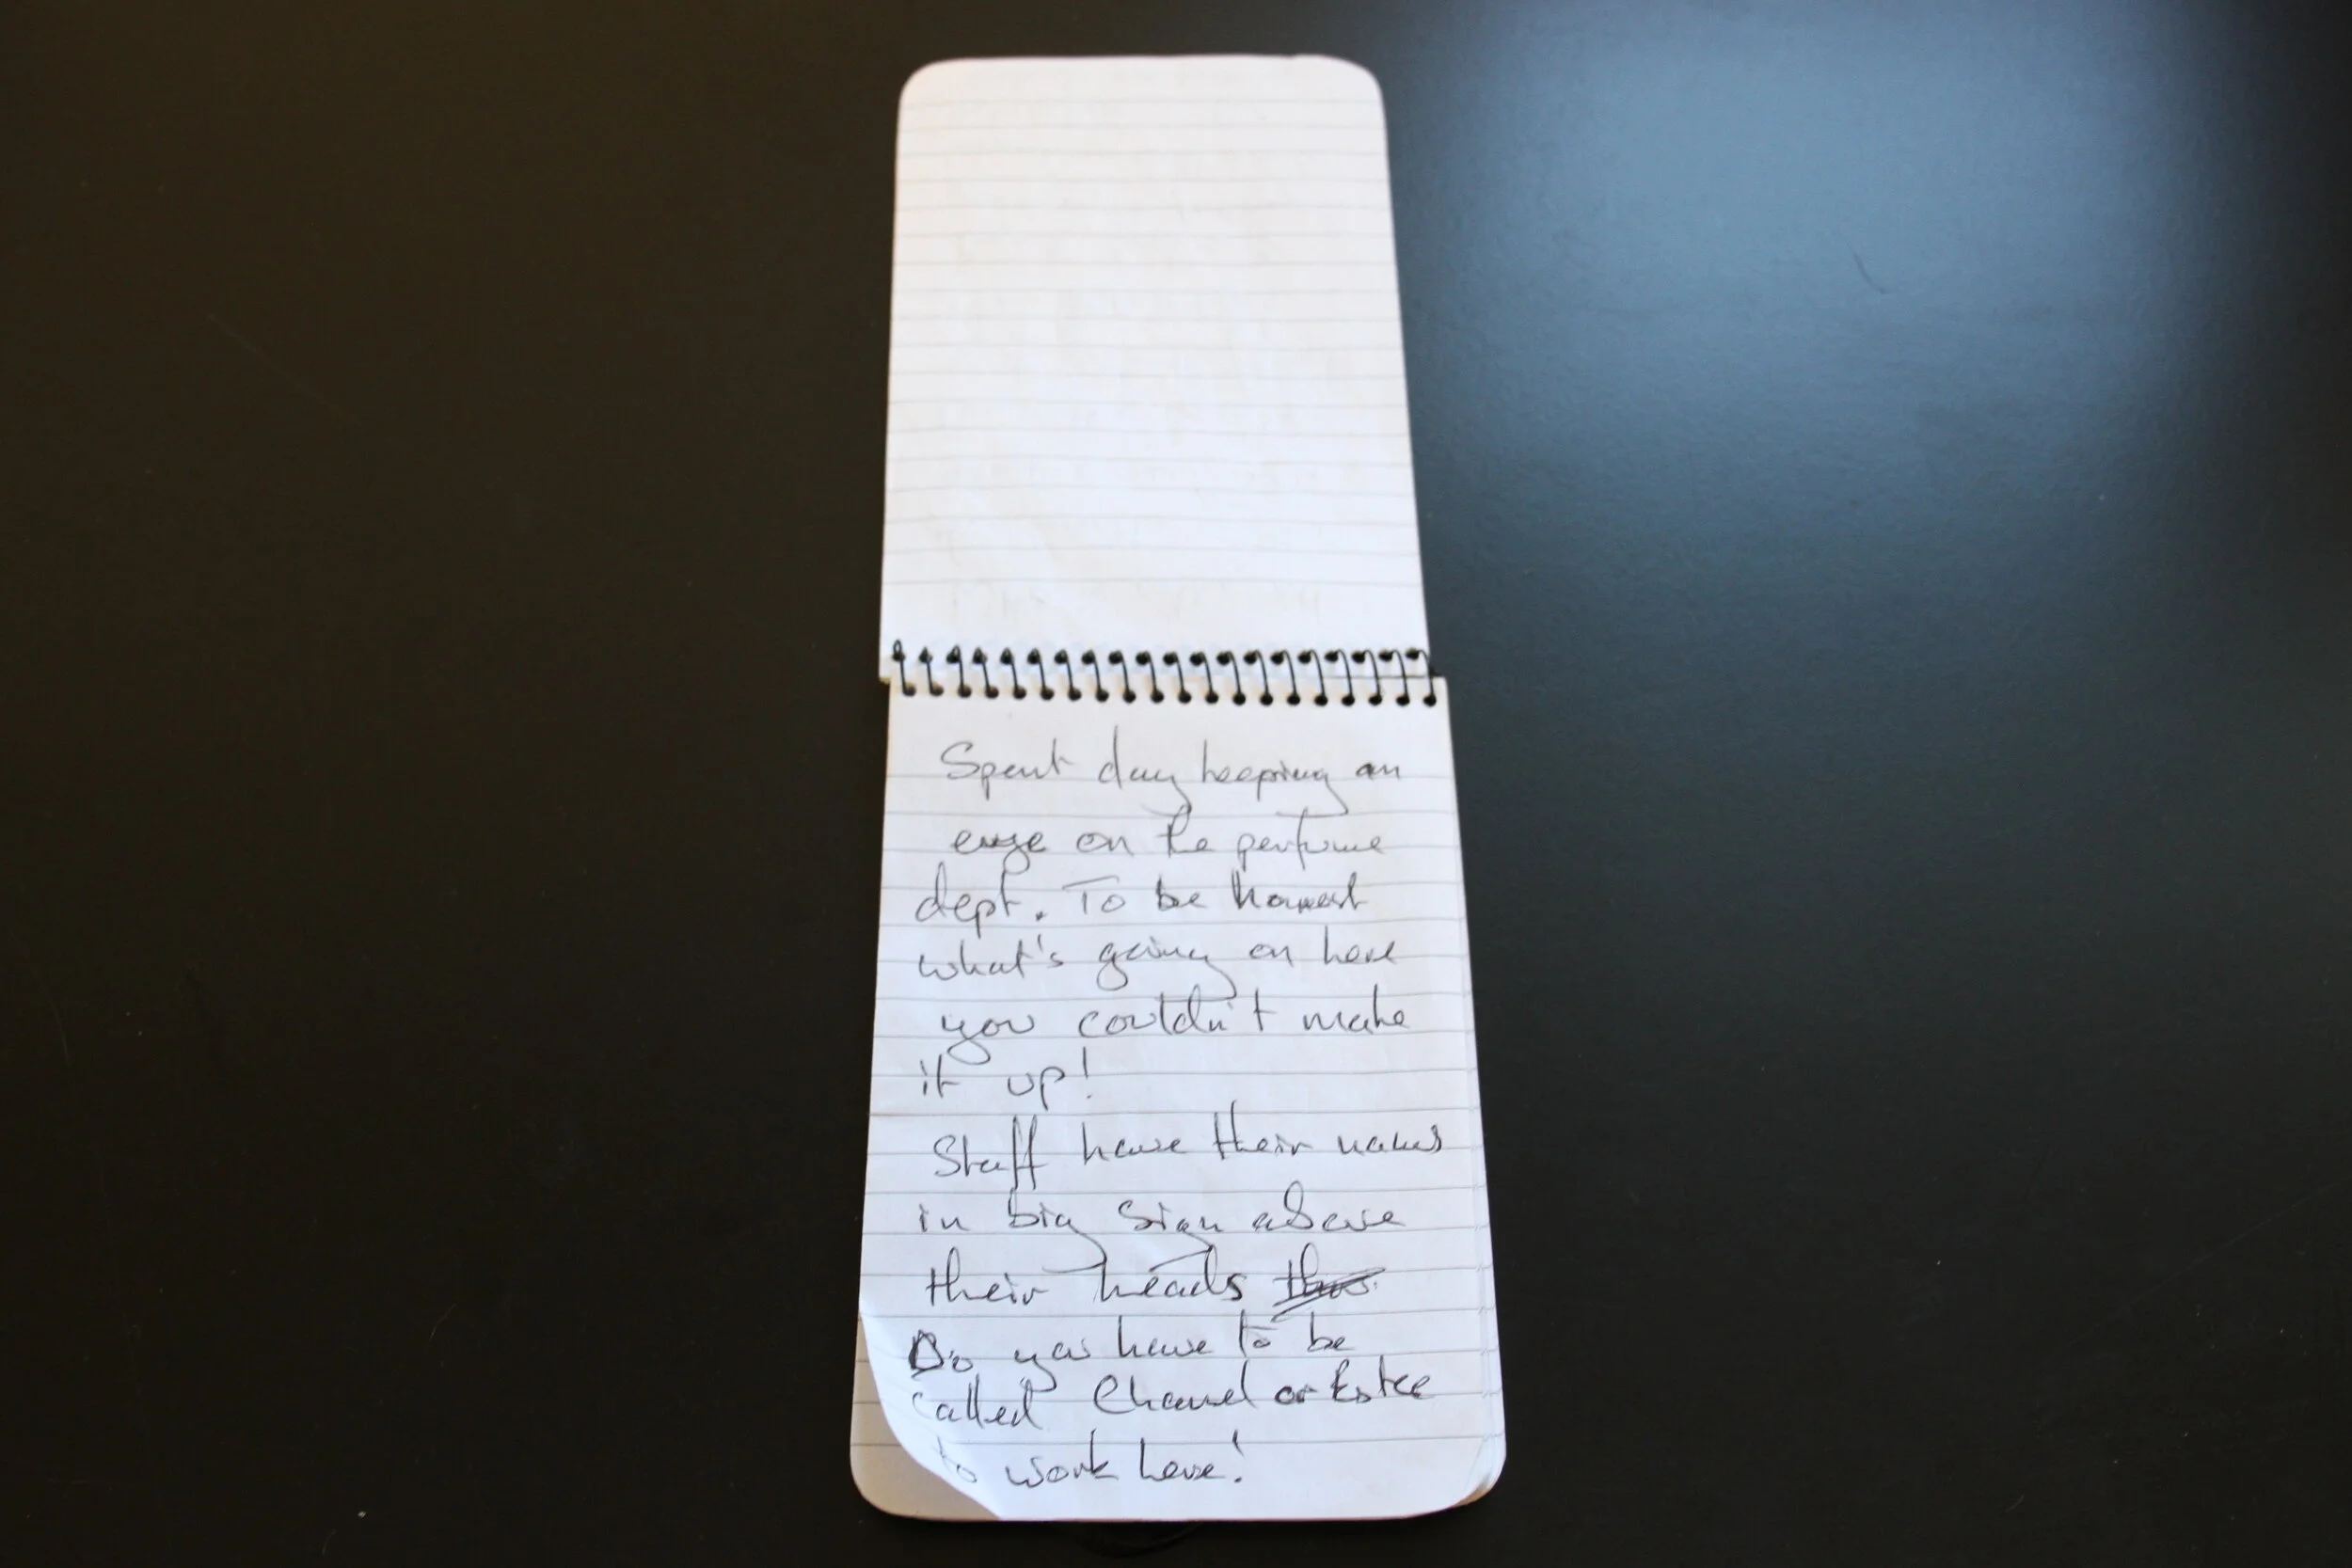 Spent day keeping an
eye on the perfume
dept. To be honest
what's going on here
you couldn't make
it up!
Staff have their names
in big sign above
their heads
Do you have to be
called Chanel or Estee
to work here!